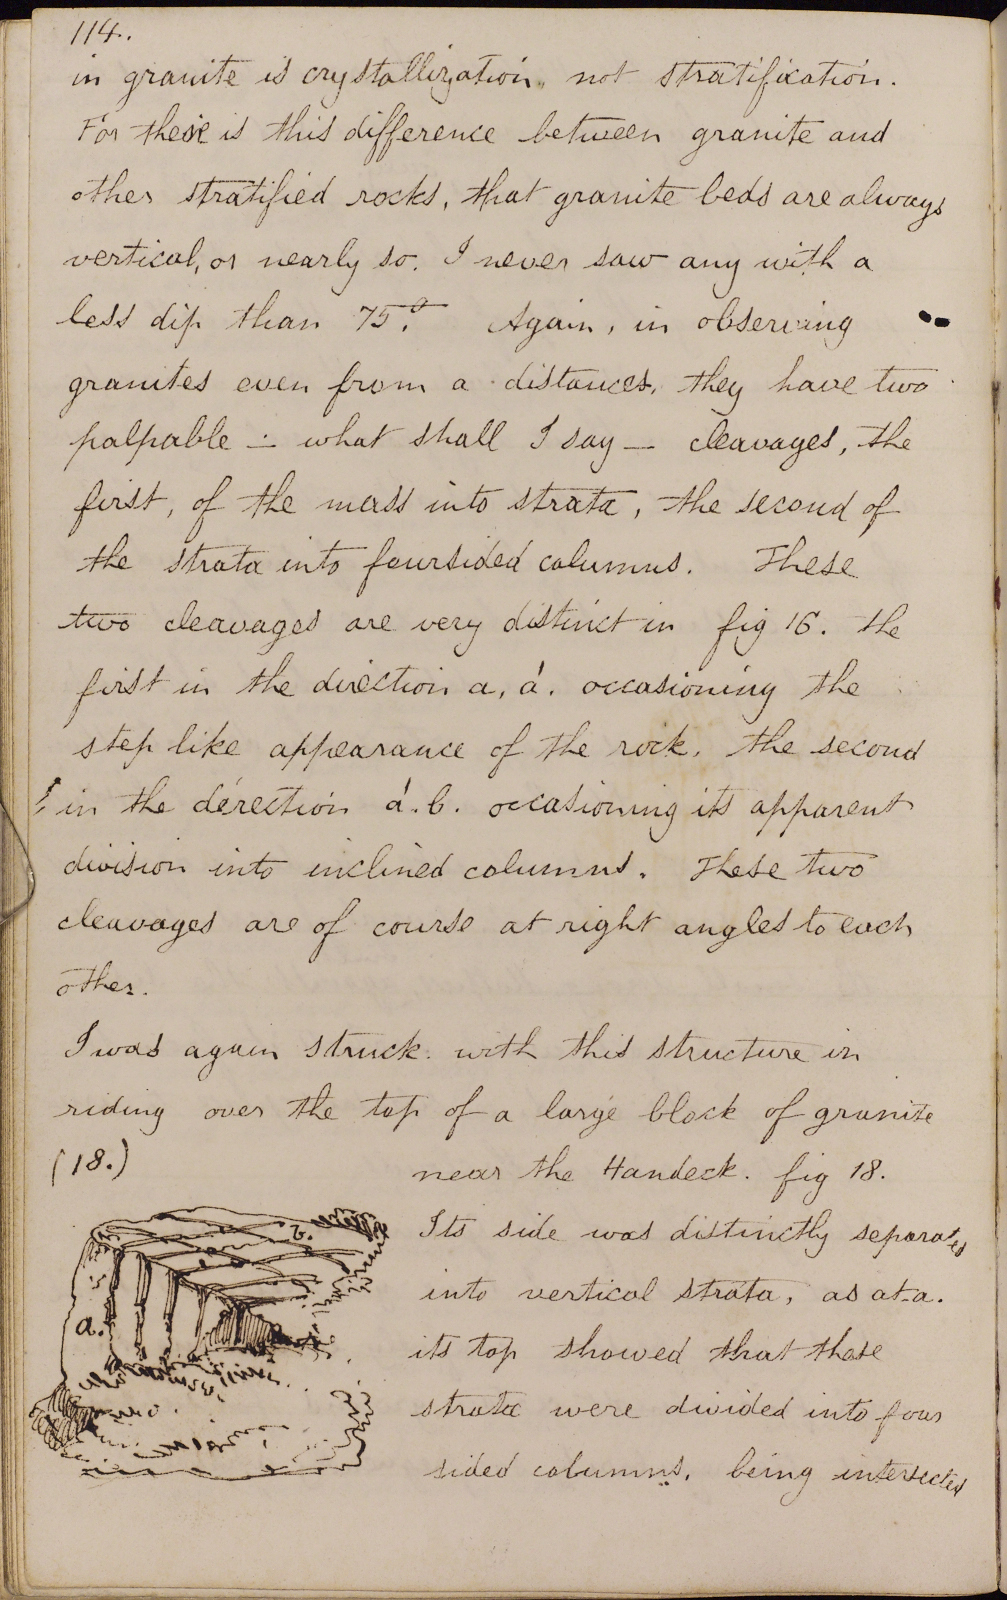 114.
in granite is crystallization, not stratification.
For there is this difference between granite and
other stratified rocks, that granite beds are always
vertical, or nearly so. I never saw any with a
less dip than 75.° Again, in observing
granites even from a distances, they have two
palpable — what shall I say — cleavages, the
first, of the mass into strata, the second of
the strata into foursided columns. These
two cleavages are very distinct in fig 16. the
first in the direction a, á. occasioning the
step like appearance of the rock, the second
in the direction á. b. occasioning its apparent
division into inclined columns. These two
cleavages are of course at right angles to each
other.
I was again struck with this structure in
riding over the top of a large block of granite
(18.)
near the Handeck. fig 18.
Its side was distinctly separated
into vertical strata, as at a.
its top showed that these
strata were divided into four
sided columns, being intersected
b.
a.